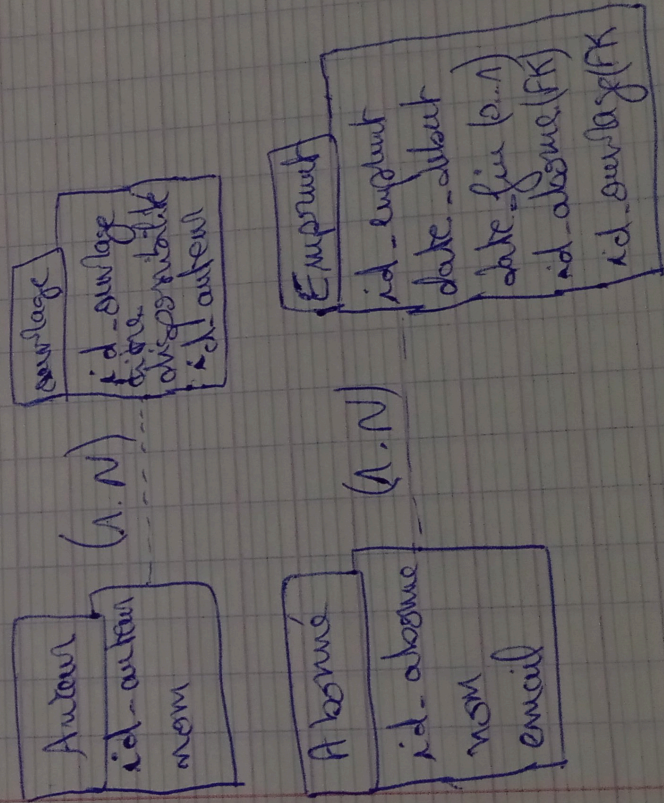 Auteur
id_auteur
nom
(1.N)
ouvrage
id_ouvrage
titre
disponibilité
id_auteur
Abonné
id_abonne
nom
email
(1.N)
Emprunt
id_emprunt
date_debut
date_fin (0..1)
id_abonne (FK)
id_ouvrage (FK